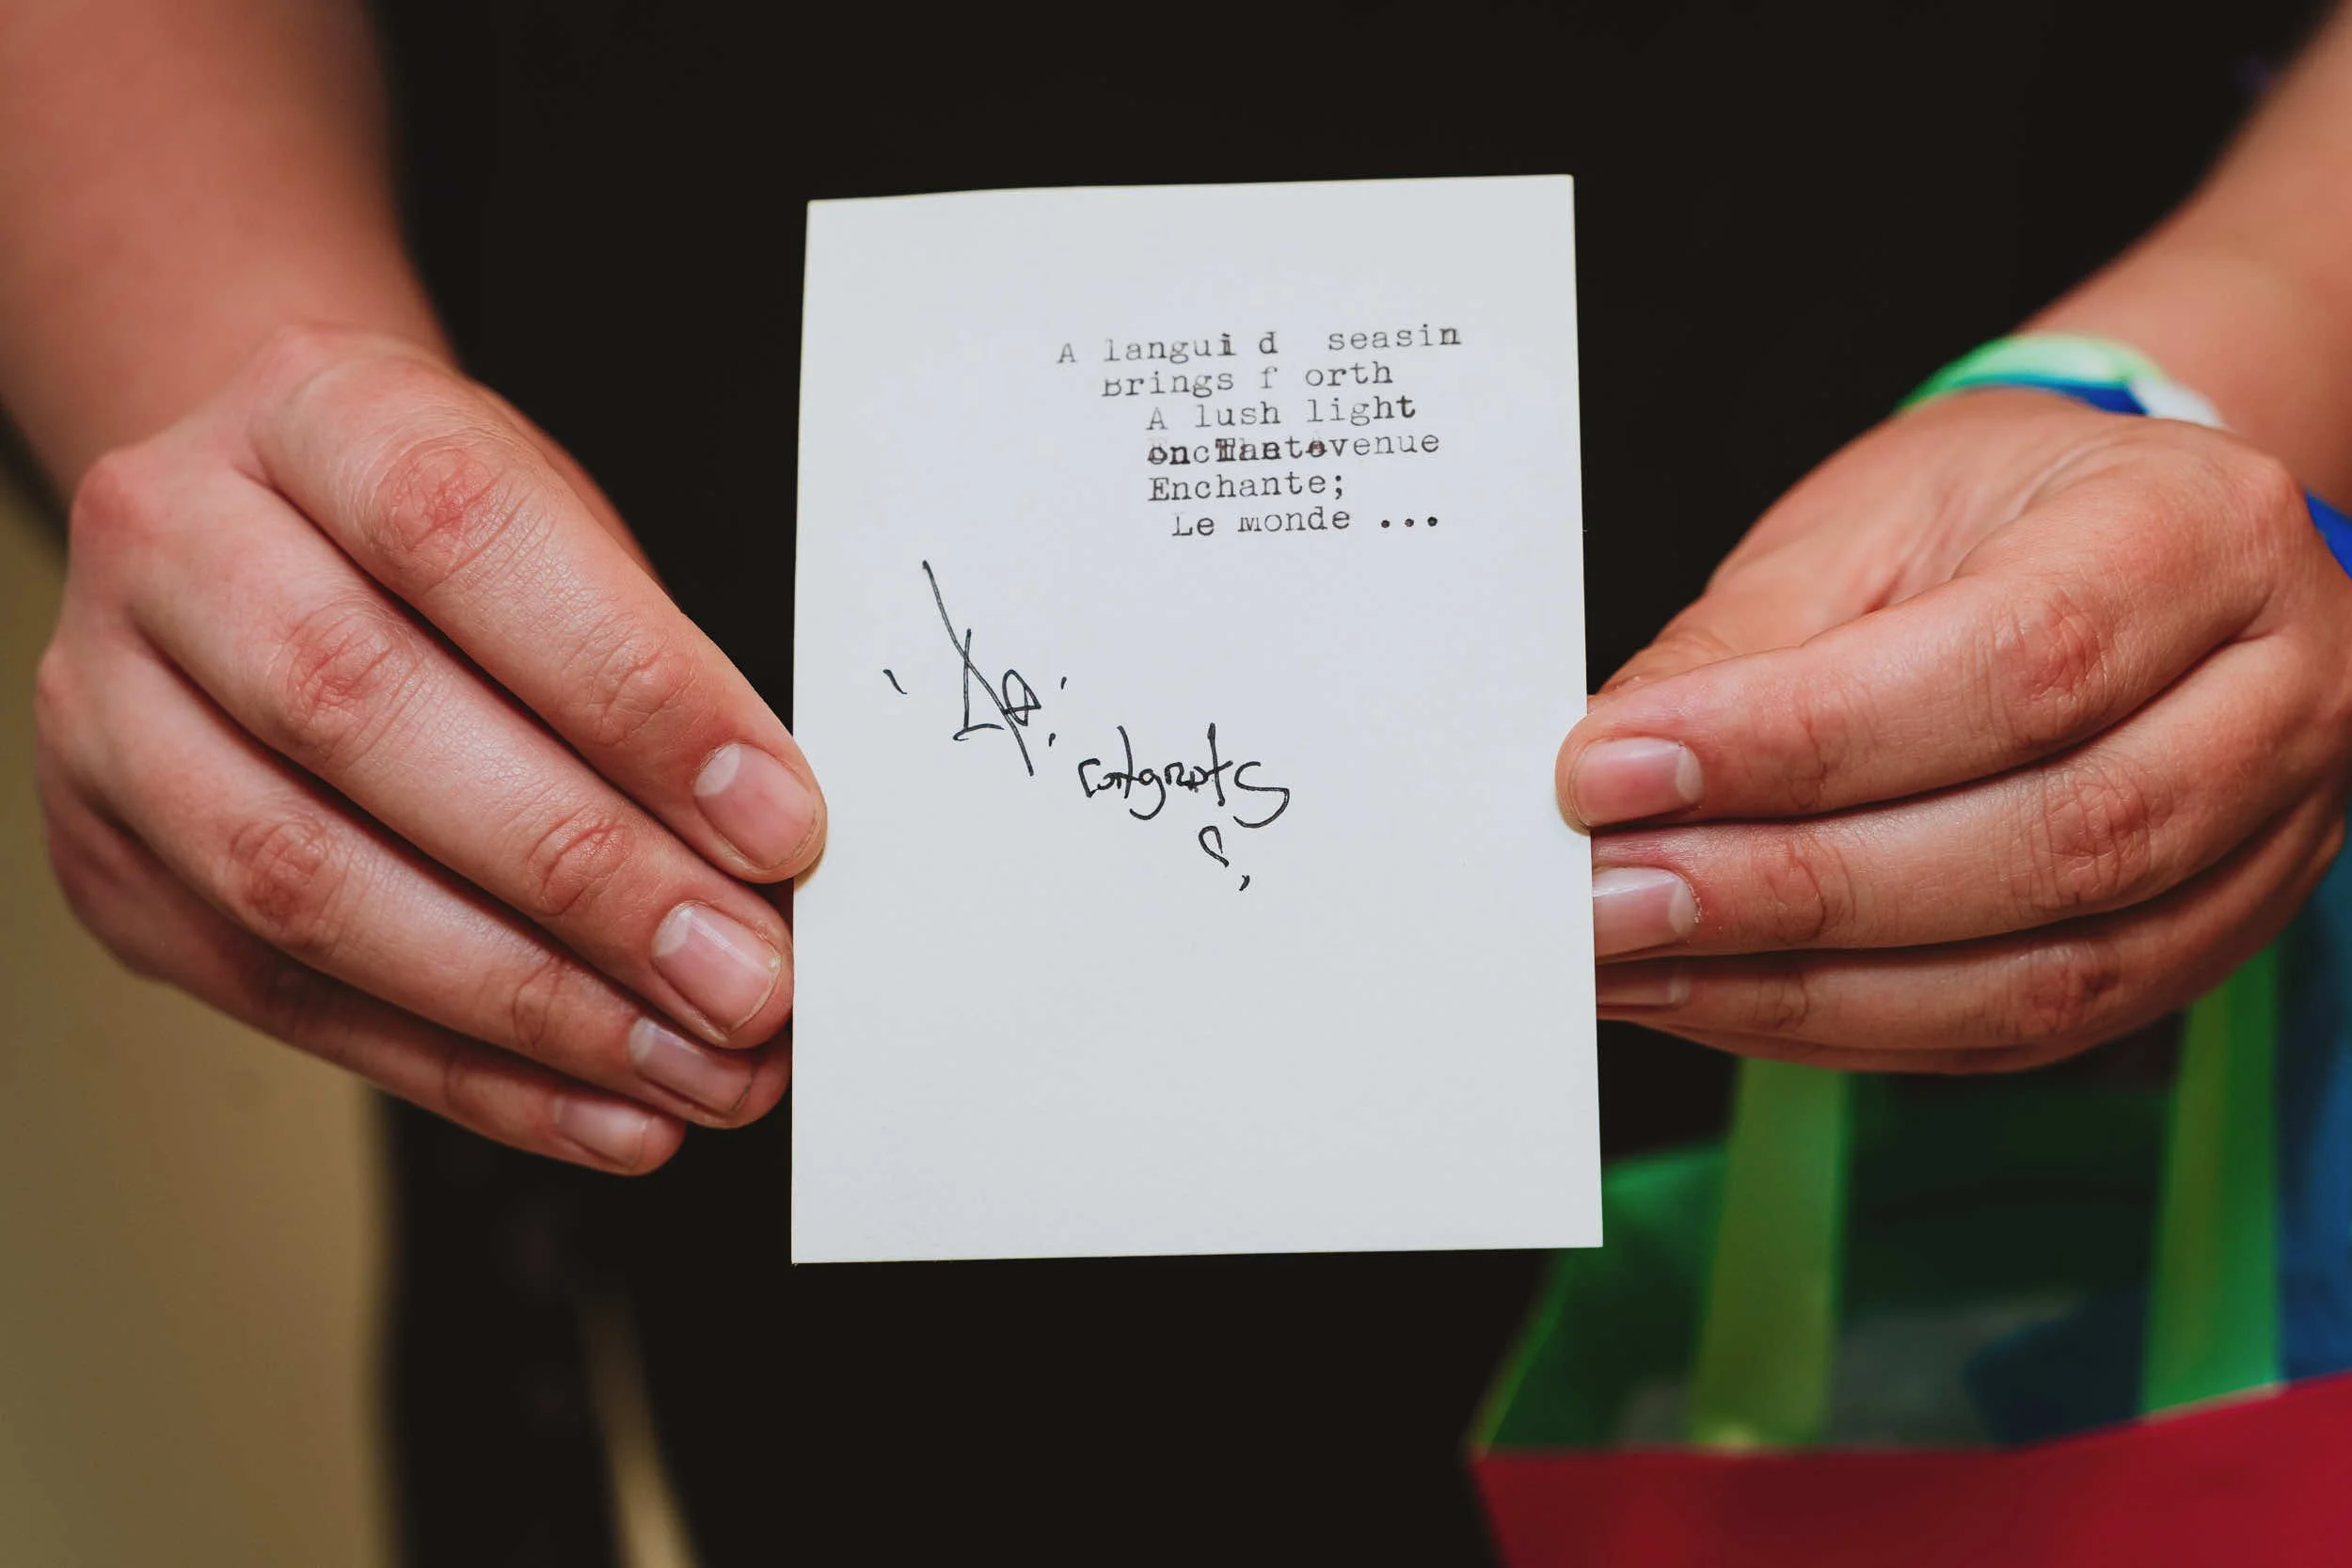 A langui d  seasin
Brings f orth
A lush light
venue
Enchante;
Le monde ...
congrats